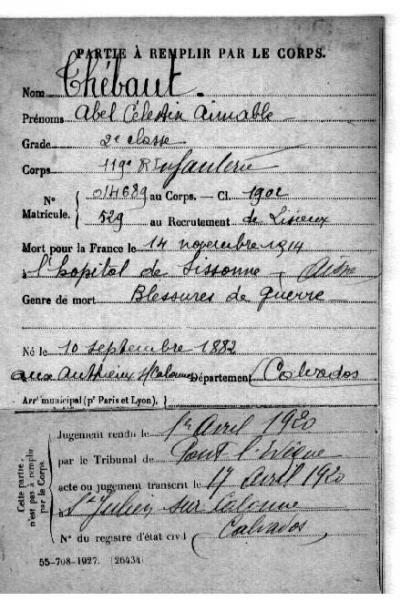 PARTIE À REMPLIR PAR LE CORPS.
Nom Thébaut.
Prénoms Abel Célestin Aimable
Grade 2e classe
Corps 119e R Infanterie
N° Matricule. { 014689 au Corps. — Cl. 1902
529 au Recrutement de Lisieux
Mort pour la France le 14 novembre 1914
à l'hopital de Sissonne - Aisne
Genre de mort Blessures de guerre
Né le 10 septembre 1882
aux Authieux s/Calonne Département Calvados
Arrt municipal (pr Paris et Lyon), }
Cette partie n'est pas à remplir par le Corps.
Jugement rendu le 1er Avril 1920
par le Tribunal de Pont l'Evêque
acte ou jugement transcrit le 17 Avril 1920
à St Julien sur Calonne
Calvados
N° du registre d'état civil
55-708-1927. [26434]